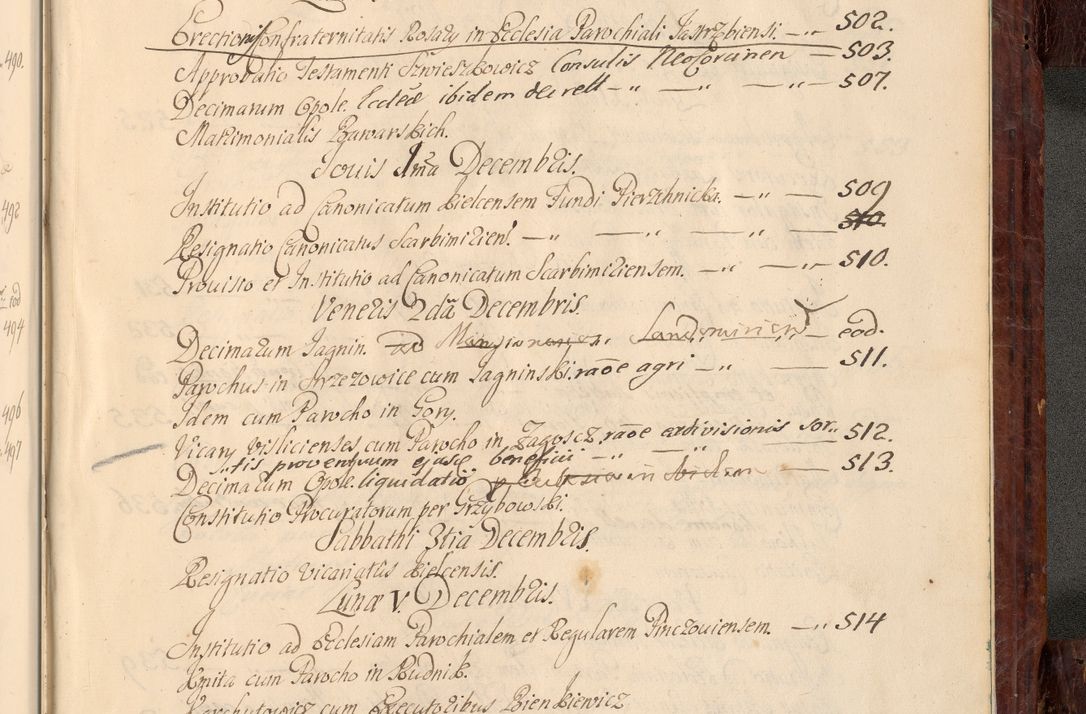 Erectionis Confraternitatis Rosarÿ in Ecclesia Parochiali Jastrzbiensi. — „ 502.
Approbatio Testamenti Szwieszkowicz Consulis Neoforoinen — 503.
Decimarum Opole. Ecclæ ibidem decrett — „ — „ — 507.
Matrimonialis Zgawarskich.
Jouis 1ma Decembris.
Institutio ad Canonicatum Kielcensem Fundi Pierzchnicka. — „ — 509
Resignatio Canonicatus Scarbimiriens. — „ — „ — 510.
Prouisio et Institutio ad Canonicatum Scarbimiriensem. — „ — „ — 510.
Veneris 2da Decembris.
Decimarum Jagnin. ad Mansionarior. Sandomirien — eod.
Parochus in Strzezowice cum Jagninski. raõe agri — „ — 511.
Idem cum Parocho in Gory.
Vicarÿ Vislicienses cum Parocho in Zagoscz raõe exdivisionis sor„ 512.
„tis proventuum ejusq. beneficii — „ — „
Decimarum Opole. liquidatio — 513.
Constitutio Procuratorum per Grzybowski.
Sabbathi 3tia Decembris.
Resignatio Vicariatus Kielcensis.
Lunæ V. Decembris.
Institutio ad Ecclesiam Parochialem et Regularem Pinczouiensem. — „ 514
Kmita cum Parocho in Rudnik.
cum Executoribus Bienkiewicz
490.
492
eod
494
496
497